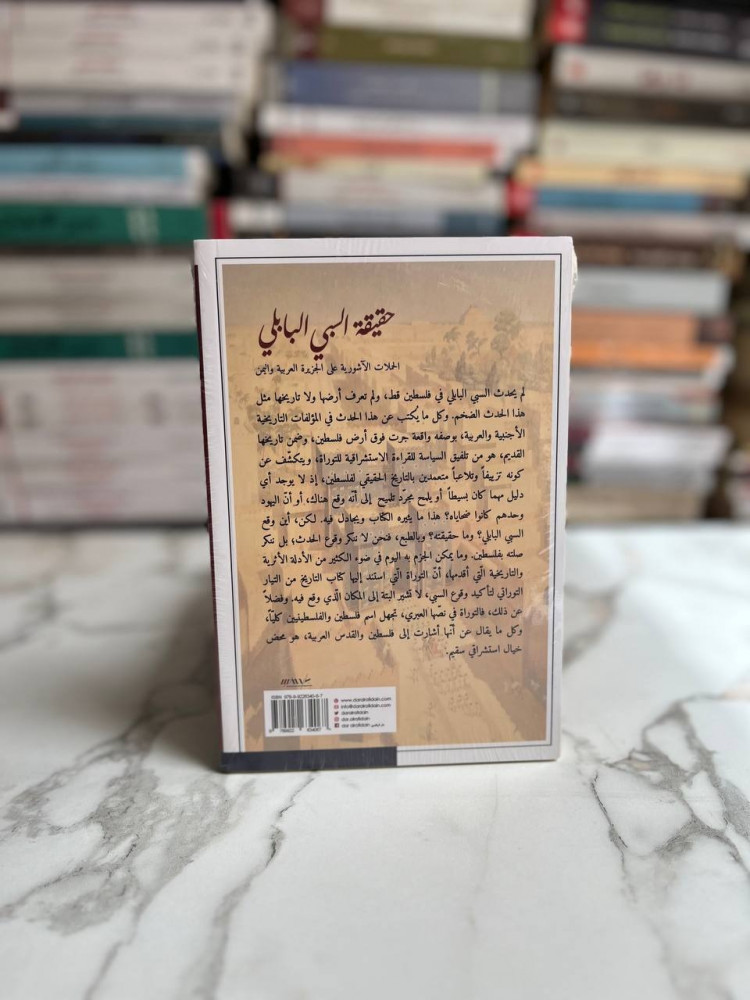 حقيقة السبي البابلي
الحملات الآشورية على الجزيرة العربية واليمن
لم يحدث السبي البابلي في فلسطين قط، ولم تعرف أرضها ولا تاريخها مثل
هذا الحدث الضخم. وكل ما يُكتب عن هذا الحدث في المؤلفات التاريخية
الأجنبية والعربية، بوصفه واقعة جرت فوق أرض فلسطين، وضمن تاريخها
القديم، هو من تلفيق السياسة للقراءة الاستشراقية للتوراة، ويتكشّف عن
كونه تزييفاً وتلاعباً متعمدين بالتاريخ الحقيقي لفلسطين، إذ لا يوجد أي
دليل مهما كان بسيطاً أو يلمح مجرّد تلميح إلى أنّه وقع هناك، أو أنّ اليهود
وحدهم كانوا ضحاياه؟ هذا ما يثيره الكتاب ويجادل فيه. لكن، أين وقع
السبي البابلي؟ وما حقيقته؟ وبالطبع، فنحن لا ننكر وقوع الحدث؛ بل ننكر
صلته بفلسطين. وما يمكن الجزم به اليوم في ضوء الكثير من الأدلة الأثرية
والتاريخية الّتي أقدمها، أنّ التوراة الّتي استند إليها كتاب التاريخ من التيار
التوراتي لتأكيد وقوع السبي، لا تشير البتة إلى المكان الّذي وقع فيه. وفضلاً
عن ذلك، فالتوراة في نصّها العبري، تجهل اسم فلسطين والفلسطينيين كليّاً،
وكل ما يقال عن أنّها أشارت إلى فلسطين والقدس العربية، هو محض
خيال استشراقي سقيم.
www.daralrafidain.com
info@daralrafidain.com
daralrafidain
dar alrafidain